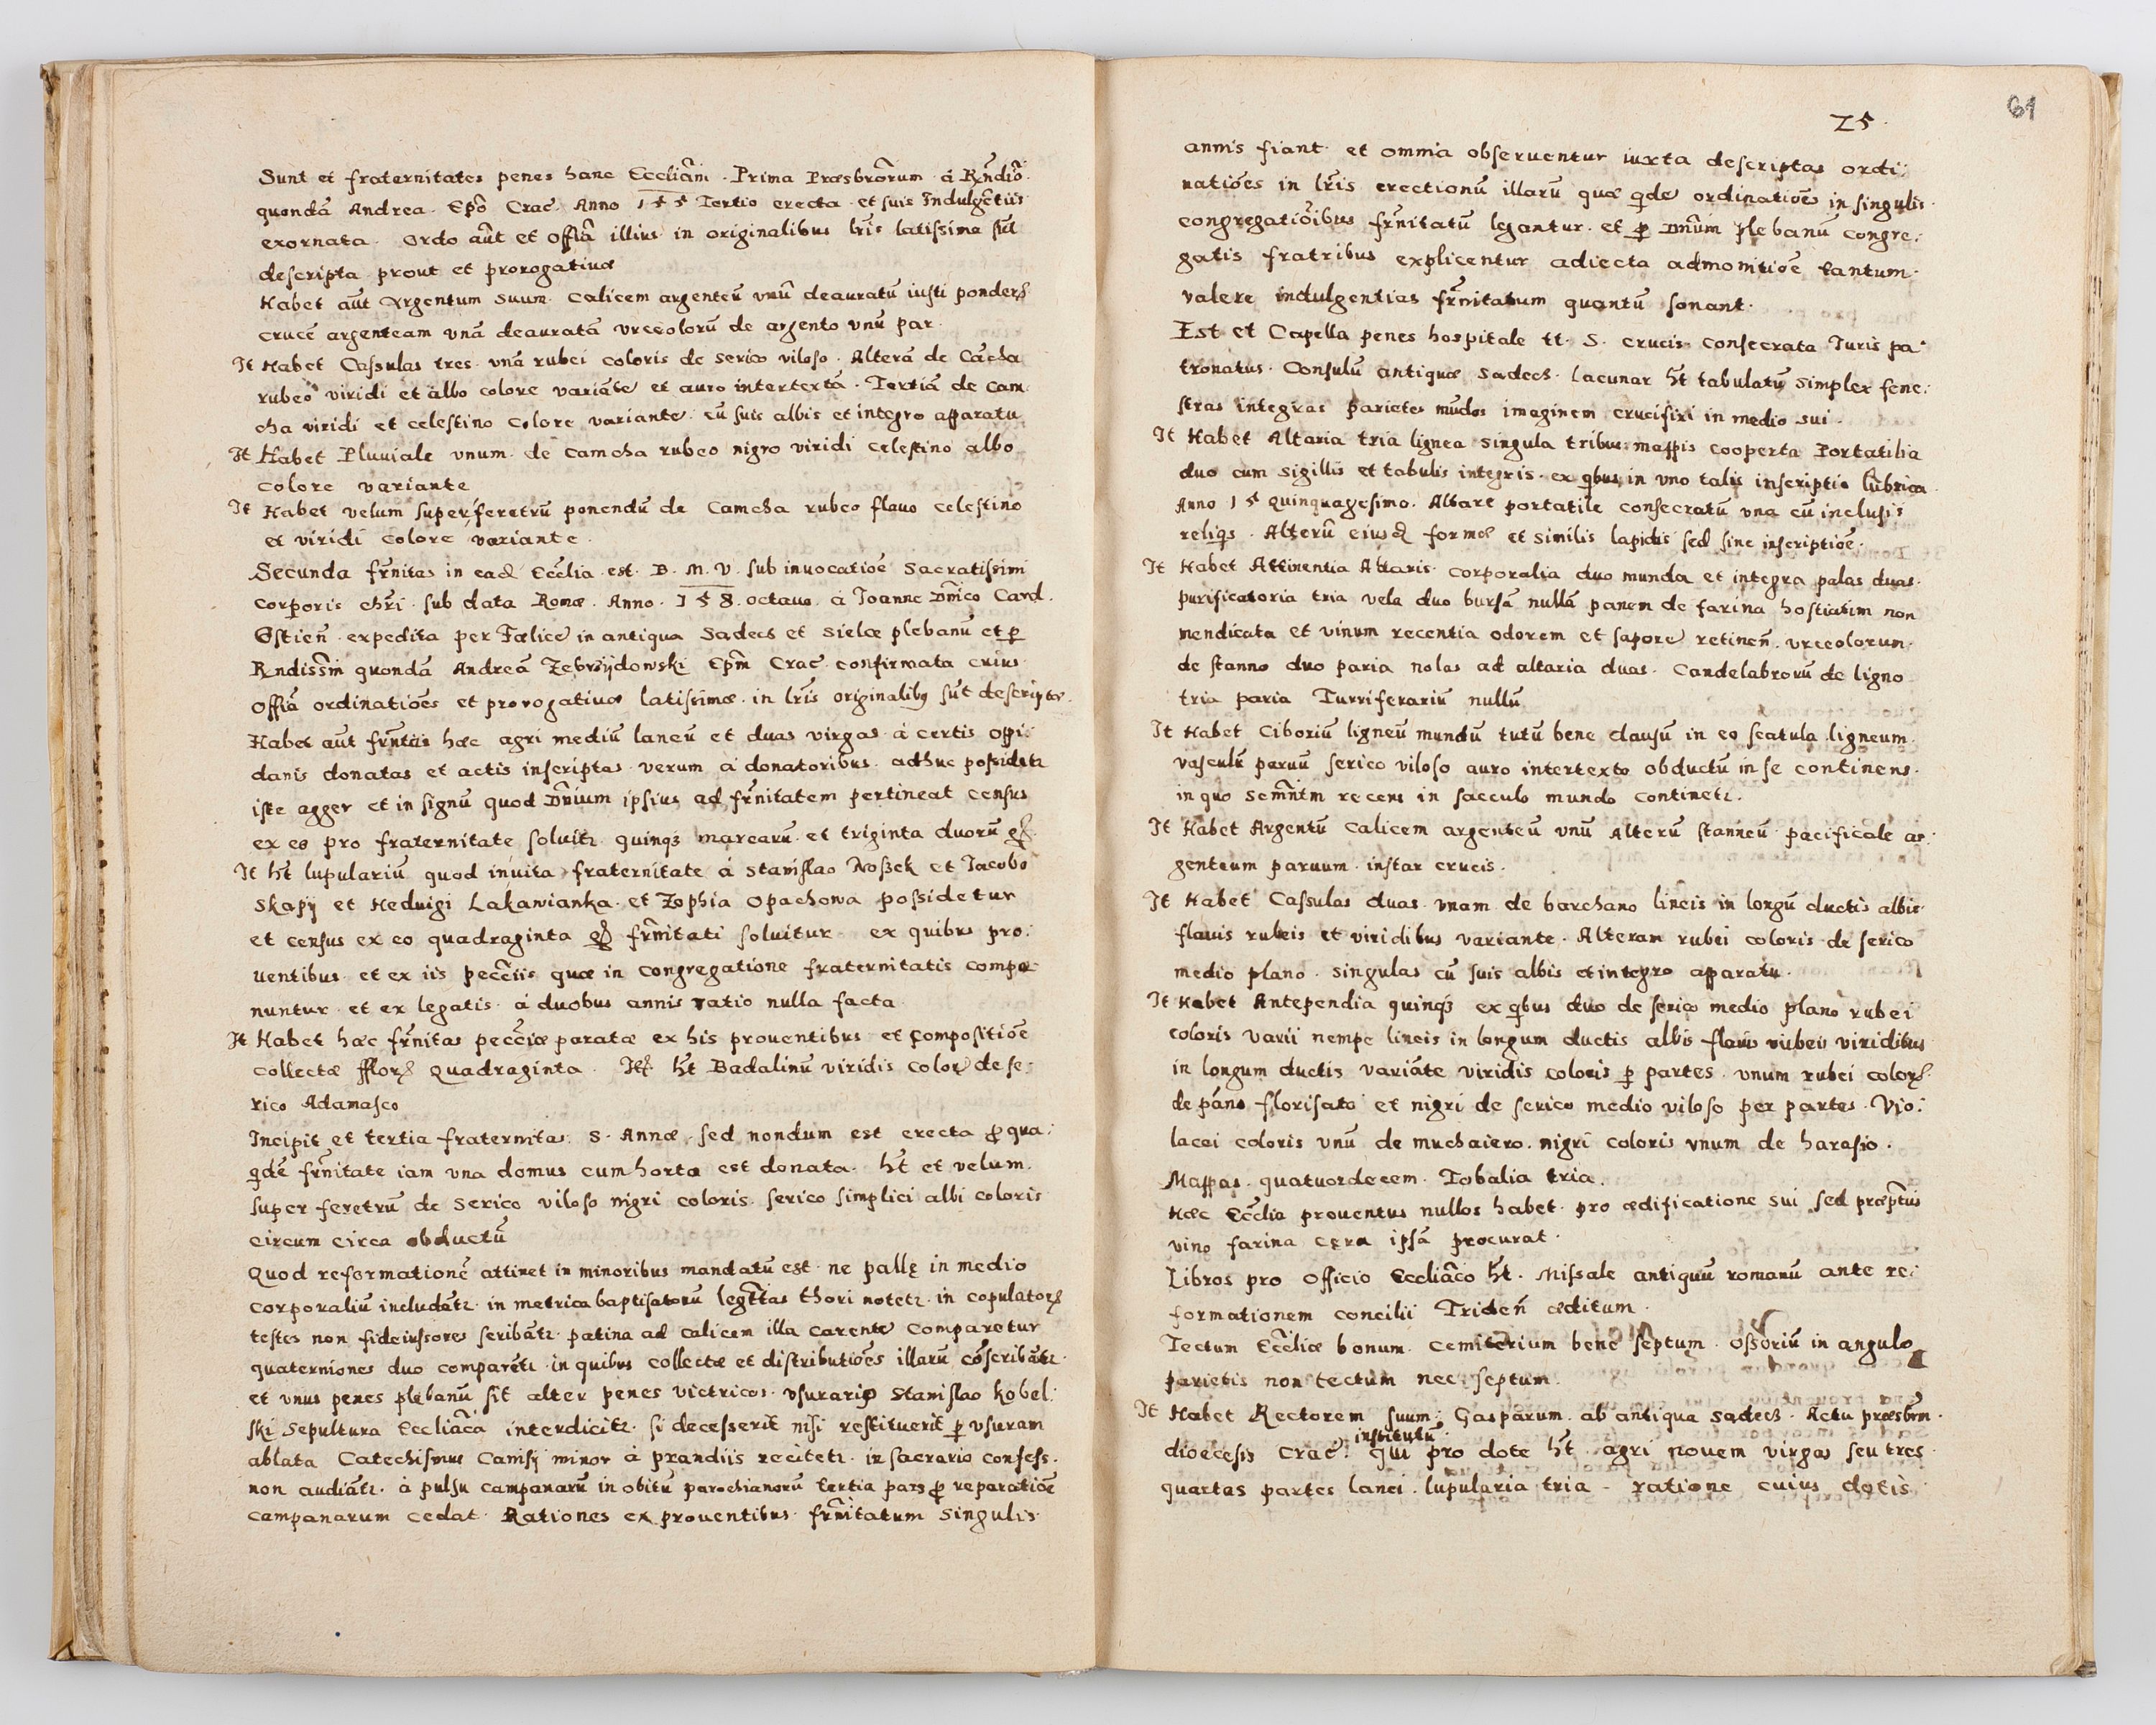 Sunt et fraternitates penes hanc Eccliãm. Prima Præsbrõrum à Rñdiõ.
quondã Andrea. Epõ Crac̃. Anno 155 Tertio erecta et suis Indulgẽtiis
exornata. Ordo aũt et offiã illius in originalibus lr̃is latissima sũt
descripta prout et prorogatiuæ
Habet aũt Argentum suum. Calicem argenteũ vnũ deauratũ iusti ponderis
crucẽ argenteam vnã deauratã vrceolorũ de argento vnũ par.
It Habet Casulas tres. vnã rubei coloris de serico viloso. Alterã de Cãcha
rubeo viridi et albo colore variãte et auro intertextã. Tertiã de cam
cha viridi et celestino colore variante cũ suis albis et integro apparatu
It Habet Pluuiale vnum. de camcha rubeo nigro viridi celestino albo
colore variante
It Habet velum super feretrũ ponendũ de Camcha rubeo flauo celestino
et viridi colore variante.
Secunda fr̃nitas in eadẽ Ecc̃lia est. B. M. V. sub inuocatiõe Sacratissimi
Corporis chr̃i. sub data Romæ. Anno. 158. octauo. à Joanne Dñico Card.
Ostieñ. expedita per Fælicẽ in antiqua Sadecz et Sielcæ plebanũ et p
Rndissm̃ quondã Andreã Zebrzijdowski Epm̃ Crac̃. confirmata cuius
offiã ordinatiões et prorogatiuæ latissimæ. in lr̃is originalibꝰ sũt descriptæ.
Habet aũt fr̃nitas hæc agri mediũ laneũ et duas virgas à certis oppi:
danis donatas et actis inscriptas verum à donatoribus. adhuc possidetr
iste agger et in signũ quod Dñium ipsius ad fr̃nitatem pertineat census
ex eo pro fraternitate soluitr quinqȝ marcarũ. et triginta duorũ gr̃.
It ht̃ lupulariũ quod inuita fraternitate à Stanislao Noßek et Jacobo
Skapij et Heduigi Lakawianka. et Zophia Opachowa possidetur
et census ex eo quadraginta gr̃ fr̃nitati soluitur ex quibus pro:
uentibus. et ex iis pecc̃iis quæ in congregatione fraternitatis compo
nuntur. et ex legatis. à duobus annis ratio nulla facta
It Habet hæc fr̃nitas pecc̃iæ paratæ ex his prouentibus et compositiõe
collectæ fflor̃ quadraginta. It̃ ht̃ Badalinũ viridis color̃ de se:
rico Adamasco
Incipit et tertia fraternitas. S. Annæ. sed nondum est erecta p qua:
qdẽ fr̃nitate iam vna domus cum horto est donata. ht̃ et velum.
super feretrũ de serico viloso nigri coloris. serico simplici albi coloris
circum circa obductũ
Quod reformationẽ attinet in minoribus mandatũ est. ne pallę in medio
corporaliũ includãtr. in metrica baptisatorũ legitt̃as thori notetr. in copulator̃
testes non fideiussores scribãtr. patina ad calicem illa carentẽ comparetur
quaterniones duo comparẽtr. in quibus collectæ et distributiões illarũ cõscribãtr.
et vnus penes plebanũ sit alter penes victricos. vsurario Stanislao Kobel:
ski Sepultura Eccliãca interdicitr. si decesserit nisi restituerit p vsuram
ablata Catechismus Canisij minor à prandiis recitetr. in sacrario confess.
non audiãtr. à pulsu campanarũ in obitũ parochianorũ tertia pars p reparatiõe
campanarum cedat. Rationes ex prouentibus. fr̃nitatum singulis
61
25
annis fiant. et omnia obseruentur iuxta descriptas ordi:
natiões in lr̃is erectionũ illarũ quæ qdẽ ordinatiões in singulis.
congregatiõibus fr̃nitatũ legantur. et p Dñum plebanũ congre:
gatis fratribus explicentur adiecta admonitiõe tantum.
valere indulgentias fr̃nitatum quantũ sonant.
Est et Capella penes hospitale tt. S. crucis consecrata Iuris pa:
tronatus. Consulũ antiquæ Sadecz. lacunar ht̃ tabulatũ simplex fene:
stras integras parietes mũdos imaginem crucifixi in medio sui.
It Habet Altaria tria lignea singula tribus mappis cooperta Portatilia
duo cum sigillis et tabulis integris. ex qbus in vno talis inscriptio lubrica
Anno 15 quinquagesimo. Altare portatile consecratũ vna cũ inclusis
reliqs. Alterũ eiusdẽ formæ et similis lapidis sed sine inscriptiõe.
It Habet Attinentia Altaris. corporalia duo munda et integra palas duas.
purificatoria tria vela duo bursã nullã panem de farina hostiatim non
mendicata et vinum recentia odorem et saporẽ retineñ. vrceolorum.
de stanno duo paria nolas ad altaria duas. Candelabrorũ de ligno
tria paria Turriferariũ nullũ
It Habet Ciboriũ ligneũ mundũ tutũ bene clausũ in eo scatula ligneum.
vasculũ paruũ serico viloso auro intertexto obductũ in se continens.
in quo Semñtm recens in sacculo mundo continetr.
It Habet Argentũ calicem argenteũ vnũ Alterũ stanneũ pacificale ar:
genteum paruum. instar crucis.
It Habet Cassulas duas. vnam de barchano lineis in longũ ductis albis
flauis rubeis et viridibus variante. Alteram rubei coloris de serico
medio plano. singulas cũ suis albis et integro apparatu.
It Habet Antependia quinqȝ ex qbus duo de serico medio plano rubei
coloris varii nempe lineis in longum ductis albis flauis rubeis viridibus
in longum ductis variãte viridis coloris p partes. vnum rubei color̃
de pãno florisato et nigri de serico medio viloso per partes. Vio:
lacei coloris vnũ de muchaiero. nigri coloris vnum de harasio.
Mappas. quatuordecem. Tobalia tria.
Hæc Ecc̃lia prouentus nullos habet. pro ædificatione sui sed præptus
vino farina cera ipsã procurat.
Libros pro officio Eccliãco ht̃. Missale antiquũ romanũ ante re:
formationem concilii Trideñ æditum.
Tectum Ecc̃liæ bonum. cemiterium bene septum. ossoriũ in angulo
parietis non tectum nec septum.
It Habet Rectorem suum: Gasparum. ab antiqua Sadecz. Actu præsbrm̃.
institutũ
diœcesis Crac̃. qui pro dote ht̃ agri nouem virgas seu tres
quartas partes lanei. lupularia tria. ratione cuius dotis